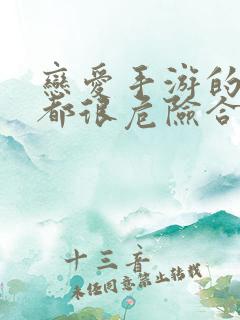 戀愛手游的
都很危險合
十三音
未经同意禁止转载